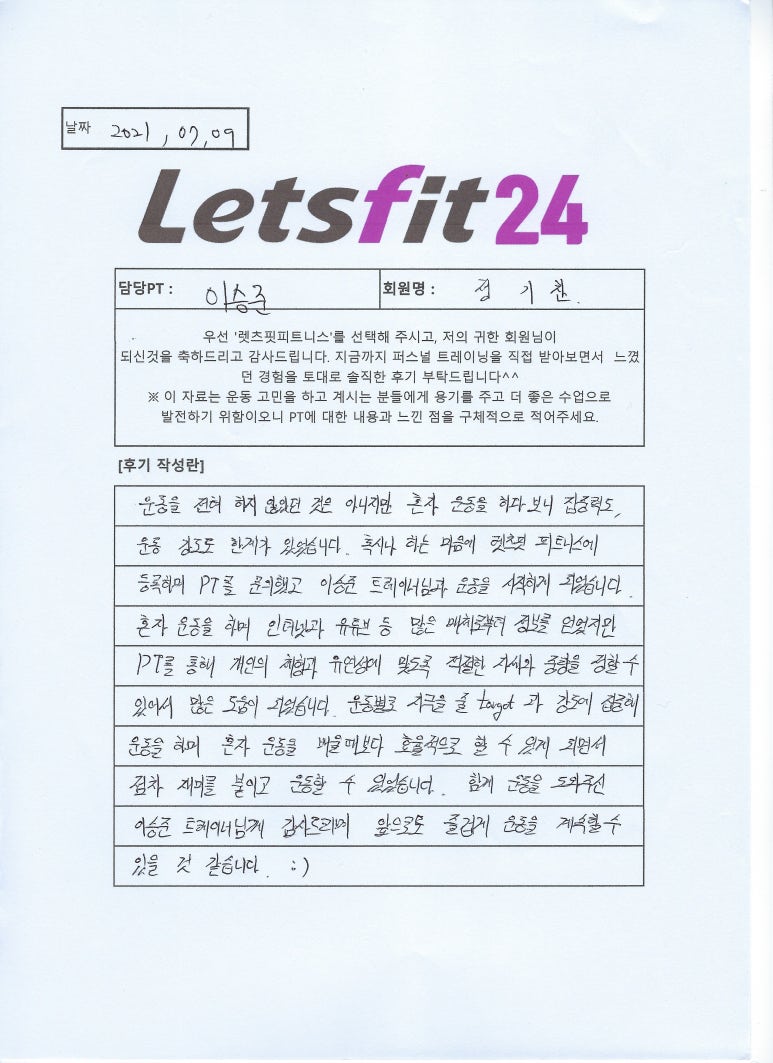 날짜 2021, 07, 09
Letsfit24
담당PT : 이승준 회원명 : 정 기 찬.
우선 '렛츠핏피트니스'를 선택해 주시고, 저의 귀한 회원님이
되신것을 축하드리고 감사드립니다. 지금까지 퍼스널 트레이닝을 직접 받아보면서 느꼈
던 경험을 토대로 솔직한 후기 부탁드립니다^^
※ 이 자료는 운동 고민을 하고 계시는 분들에게 용기를 주고 더 좋은 수업으로
발전하기 위함이오니 PT에 대한 내용과 느낀 점을 구체적으로 적어주세요.
[후기 작성란]
운동을 전혀 하지 않았던 것은 아니지만 혼자 운동을 하다 보니 집중력도,
운동 강도도 한계가 있었습니다. 혹시나 하는 마음에 렛츠핏 피트니스에
등록하며 PT를 문의했고 이승준 트레이너님과 운동을 시작하게 되었습니다.
혼자 운동을 하며 인터넷과 유튜브 등 많은 매체로부터 정보를 얻었지만
PT를 통해 개인의 체형과 유연성에 맞도록 적절한 자세와 중량을 정할 수
있어서 많은 도움이 되었습니다. 운동별로 자극을 줄 target 과 강도에 집중해
운동을 하며 혼자 운동을 배울때보다 효율적으로 할 수 있게 되면서
점차 재미를 붙이고 운동할 수 있었습니다. 함께 운동을 도와주신
이승준 트레이너님께 감사드리며 앞으로도 즐겁게 운동을 계속할 수
있을 것 같습니다. :)